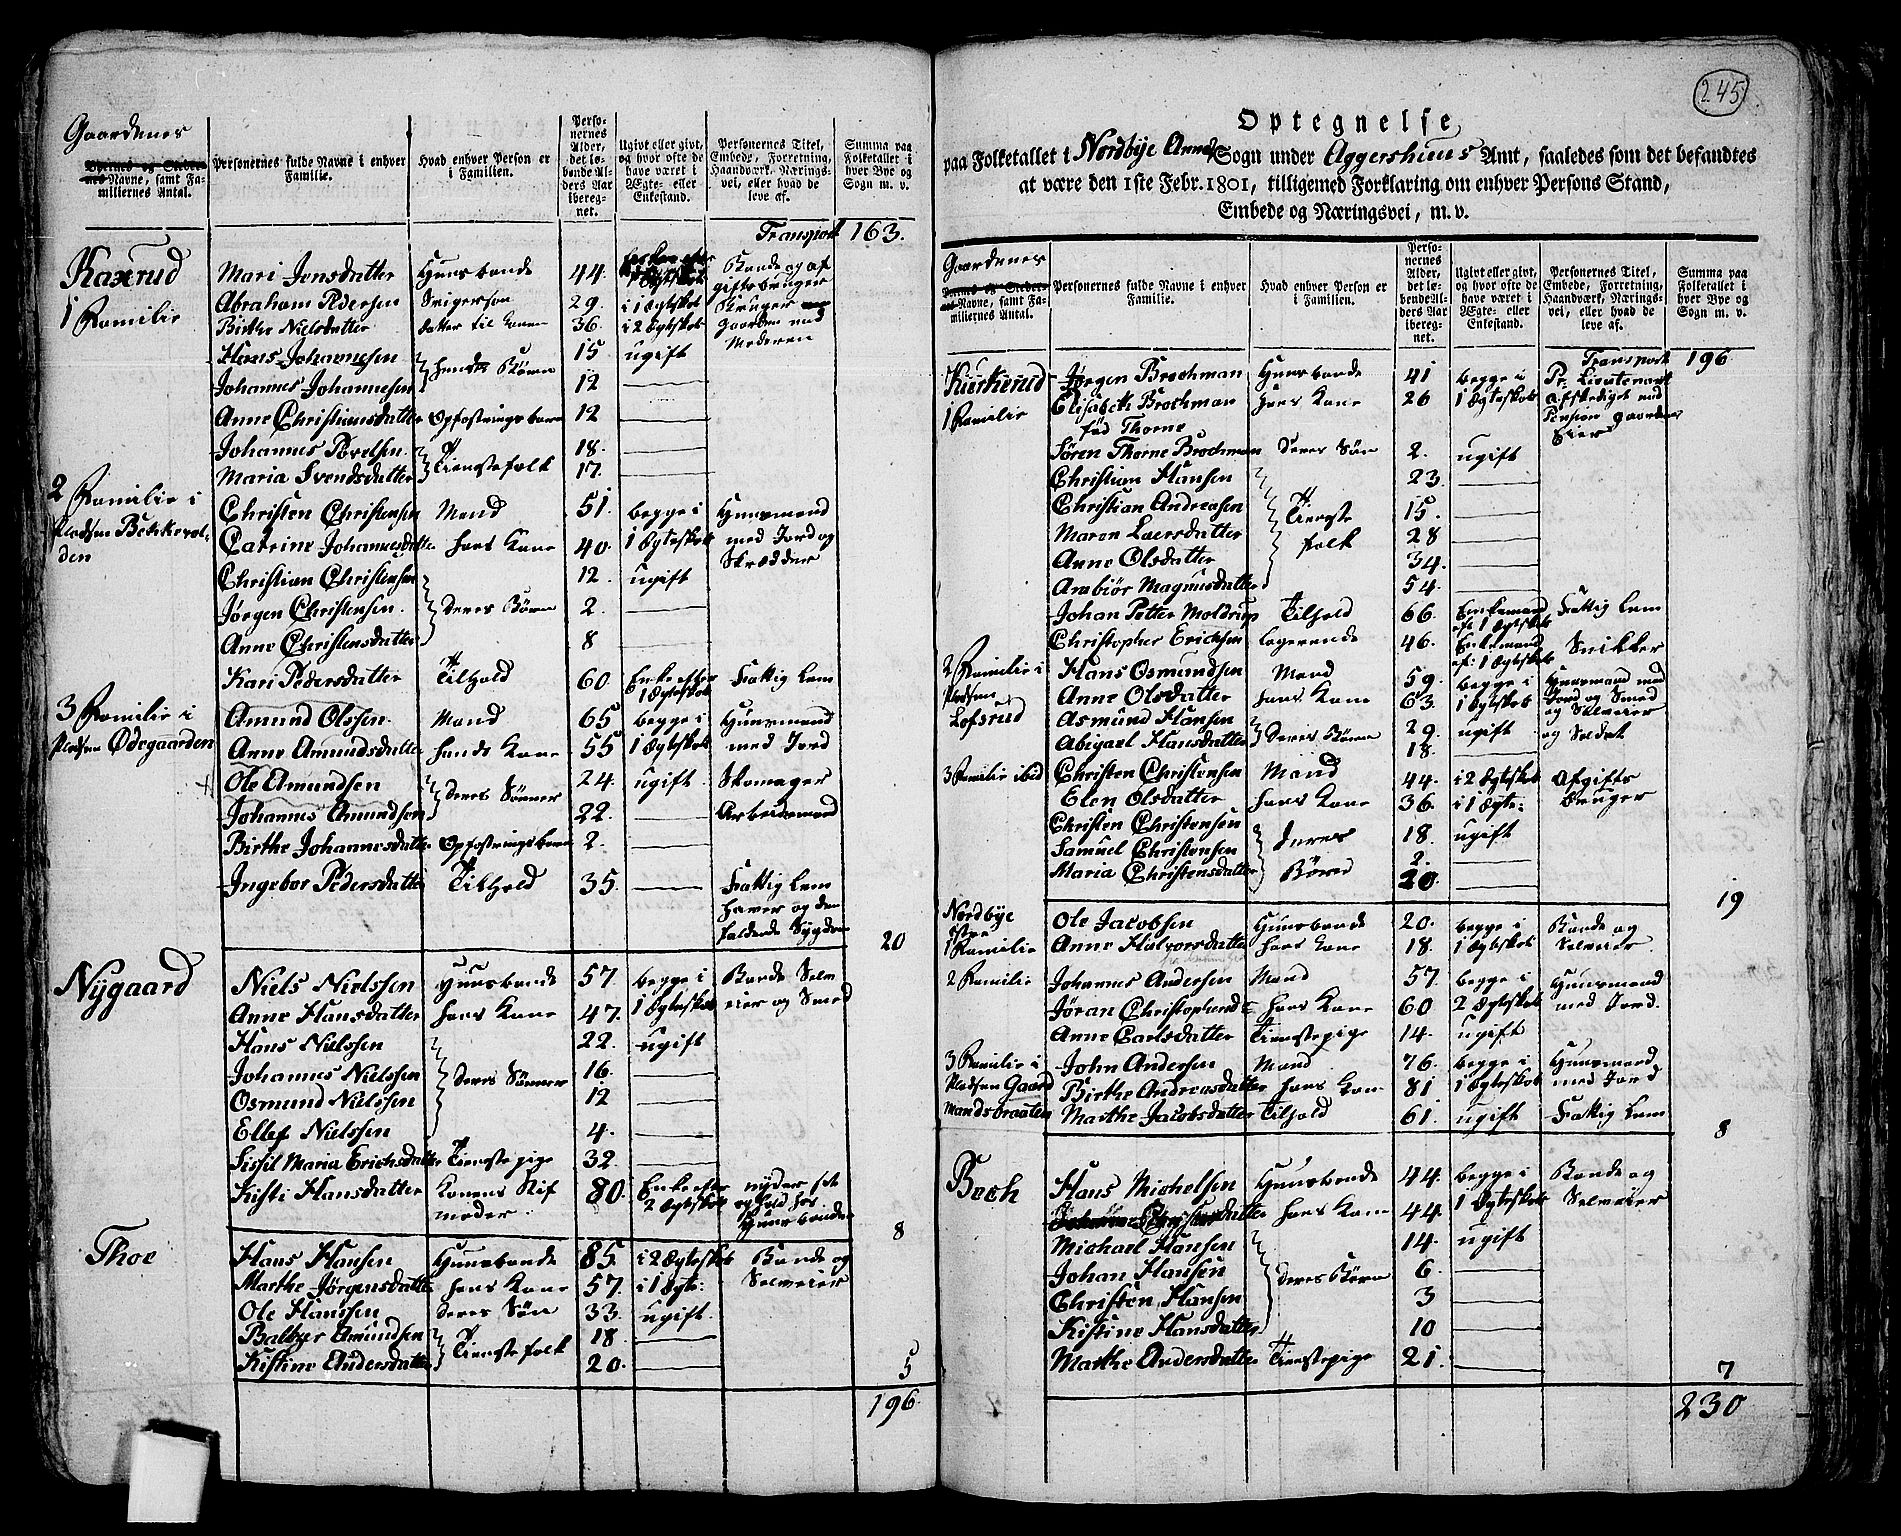 Gaardenes
Byernes og Stedernes Navne, samt Familiernes Antal.
Personernes fulde Navne i enhver Familie.
Hvad enhver Person er i Familien.
Personernes Alder, det løbende Alders Aar iberegnet.
Ugivt eller givt, og hvor ofte de have været i Ægte- eller Enkestand.
Personernes Titel, Embede, Forretning, Haandværk, Næringsvei, eller hvad de leve af.
Summa paa Folketallet i hver Bye og Sogn m. v.
Transport 163.
Kaxrud Mari Jensdatter Huusbonde 44. Bonde og af
Abraham Pedersen Svigersøn 29. i 1 Ægteskab giftsbruger
1 Familie Birthe Nielsdatter datter til konen 36. i 2 Ægteskab bruger gaarden med
Hans Johannesen hendes Børn 15 ugift Moderen
Johannes Johannesen 12
Anne Christiansdatter Opfostringsbarn 12
Johannes Povelsen Tienestefolk 18.
Maria Svendsdatter 17.
2 Familie i Christen Christensen Mand 51. begge i Huusmand
Pladsen Catrine Johannesdatter hans Kone 40. 1 Ægteskab med Jord og
den Christian Christensen deres Børn 12. ugift Skrædder
Jørgen Christensen 2.
Anne Christensdatter 8
Kari Pedersdatter Tilhold 60 Enke efter 1 Ægteskab Fattig Lem
3 Familie i Amund Olssen Mand 65 begge i Huusmand
Pladsen Ødegaarden Anne Amundsdatter hands Kone 55 1 Ægteskab med Jord
Ole Amundsen deres Sønner 24. ugift Skomager
Johannes Amundsen 22. Arbeidsmand
Birthe Johannesdatter Opfostringsbarn 2.
Ingebor Pedersdatter Tilhold 35. Fattig Lem
haver og den
faldende Sygdom
20
Nÿgaard Niels Nielssen Huusbonde 57. begge i Bonde Selv
Anne Hansdatter hans Kone 47. 1 Ægteskab eier og Smed
Hans Nielssen deres Sønner 22. ugift
Johannes Nielssen 16.
Osmund Nielssen 12
Ellef Nielssen 4.
Sissil Maria Erichsdatter Tienestepige 32.
Kisti Hansdatter Konens Stif 80. Enke efter nyder sit
moder. 2 Ægteskab ophold hos
Huusbonden
8
Thoe Hans Hansen Huusbonde 85. i 2 Ægteskab Bonde og
Marthe Jørgensdatter hans Kone 57. i 1 Ægte: Selveier
Ole Hanssen deres Søn 33. ugift.
Amundsen Tienestefolk 18.
Kistine Andersdatter 20. 5
196.
245
Optegnelse
paa Folketallet i Nordbye Annex Sogn under Aggershuus Amt, saaledes som det befandtes
at være den 1ste Febr. 1801, tilligemed Forklaring om enhver Persons Stand,
Embede og Næringsvei, m. v.
Gaardenes
Byernes og Stedernes Navne, samt Familiernes Antal.
Personernes fulde Navne i enhver Familie.
Hvad enhver Person er i Familien.
Personernes Alder, det løbende Alders Aar iberegnet.
Ugivt eller givt, og hvor ofte de have været i Ægte- eller Enkestand.
Personernes Titel, Embede, Forretning, Haandværk, Næringsvei, eller hvad de leve af.
Summa paa Folketallet i hver Bye og Sogn m. v.
Transport 196
Kierkerud Jørgen Brochman Huusbonde 41 begge i Pr. Lieutenant
1 Familie Elisabeth Brochman hans Kone 26 1 Ægteskab afskediget med
fød Thorne Pension gaardens
Søren Thorne Brochman deres Søn 2. ugift Eier
Christian Hansen Tieneste folk 23.
Christian Andreasen 15.
Maren Laersdatter 28
Anne Olsdatter 34.
Anbiør Magnusdatter 54.
Johan Petter Moldrup Tilhold 66. Enkemand eft. 1 Ægteskab Fattig Lem
Christopher Erichsen Logerende 46. Enkemand eft: 1 Ægteskab Snikker
2 Familie i Hans Osmundsen Mand 59. begge i Huusmand med
Pladsen Anne Olsdatter hans Kone 63. 1 Ægteskab Jord og Smed
Lofsrud Asmund Hansen deres Børn 29. ugift og Selveier
Abigael Hansdatter 18. og Soldat
3 Familie ibid Christen Christensen Mand 44. i 2 Ægteskab Afgifts
Elen Olsdatter hans Kone 36. i 1 Ægte: bruger
Christen Christensen deres Børn 18. ugift
Samuel Christensen 2.
Maria Christensdatter 20.
19
Nordbye østre Ole Jacobsen Huusbonde 20. begge i Bonde og
1 Familie Anne Halvorsdatter hans Kone 18. 1 Ægteskab Selveier.
2 Familie Johannes Andersen Mand 57. begge i Huusmand
Jøran Christophersd: hans Kone 60 2 Ægteskab med Jord.
Anne Carlsdatter Tienestepige 14. ugift
3 Familie i John Andersen Mand 76. begge i Huusmand
Pladsen Gaard Birthe Andreasdatter hans Kone 81 1 Ægteskab med Jord
mandsbraaten Marthe Jacobsdatter Tilhold 61. ugift Fattig Lem
8
Boch Hans Michelsen Huusbonde 44. begge i Bonde og
hans Kone 44. 1 Ægteskab Selveier
Michael Hansen deres Børn 14. ugift
Johan Hansen 6.
Christen Hansen 3
Kistine Hansdatter 10
Marthe Andersdatter Tienestepige 21.
7
230